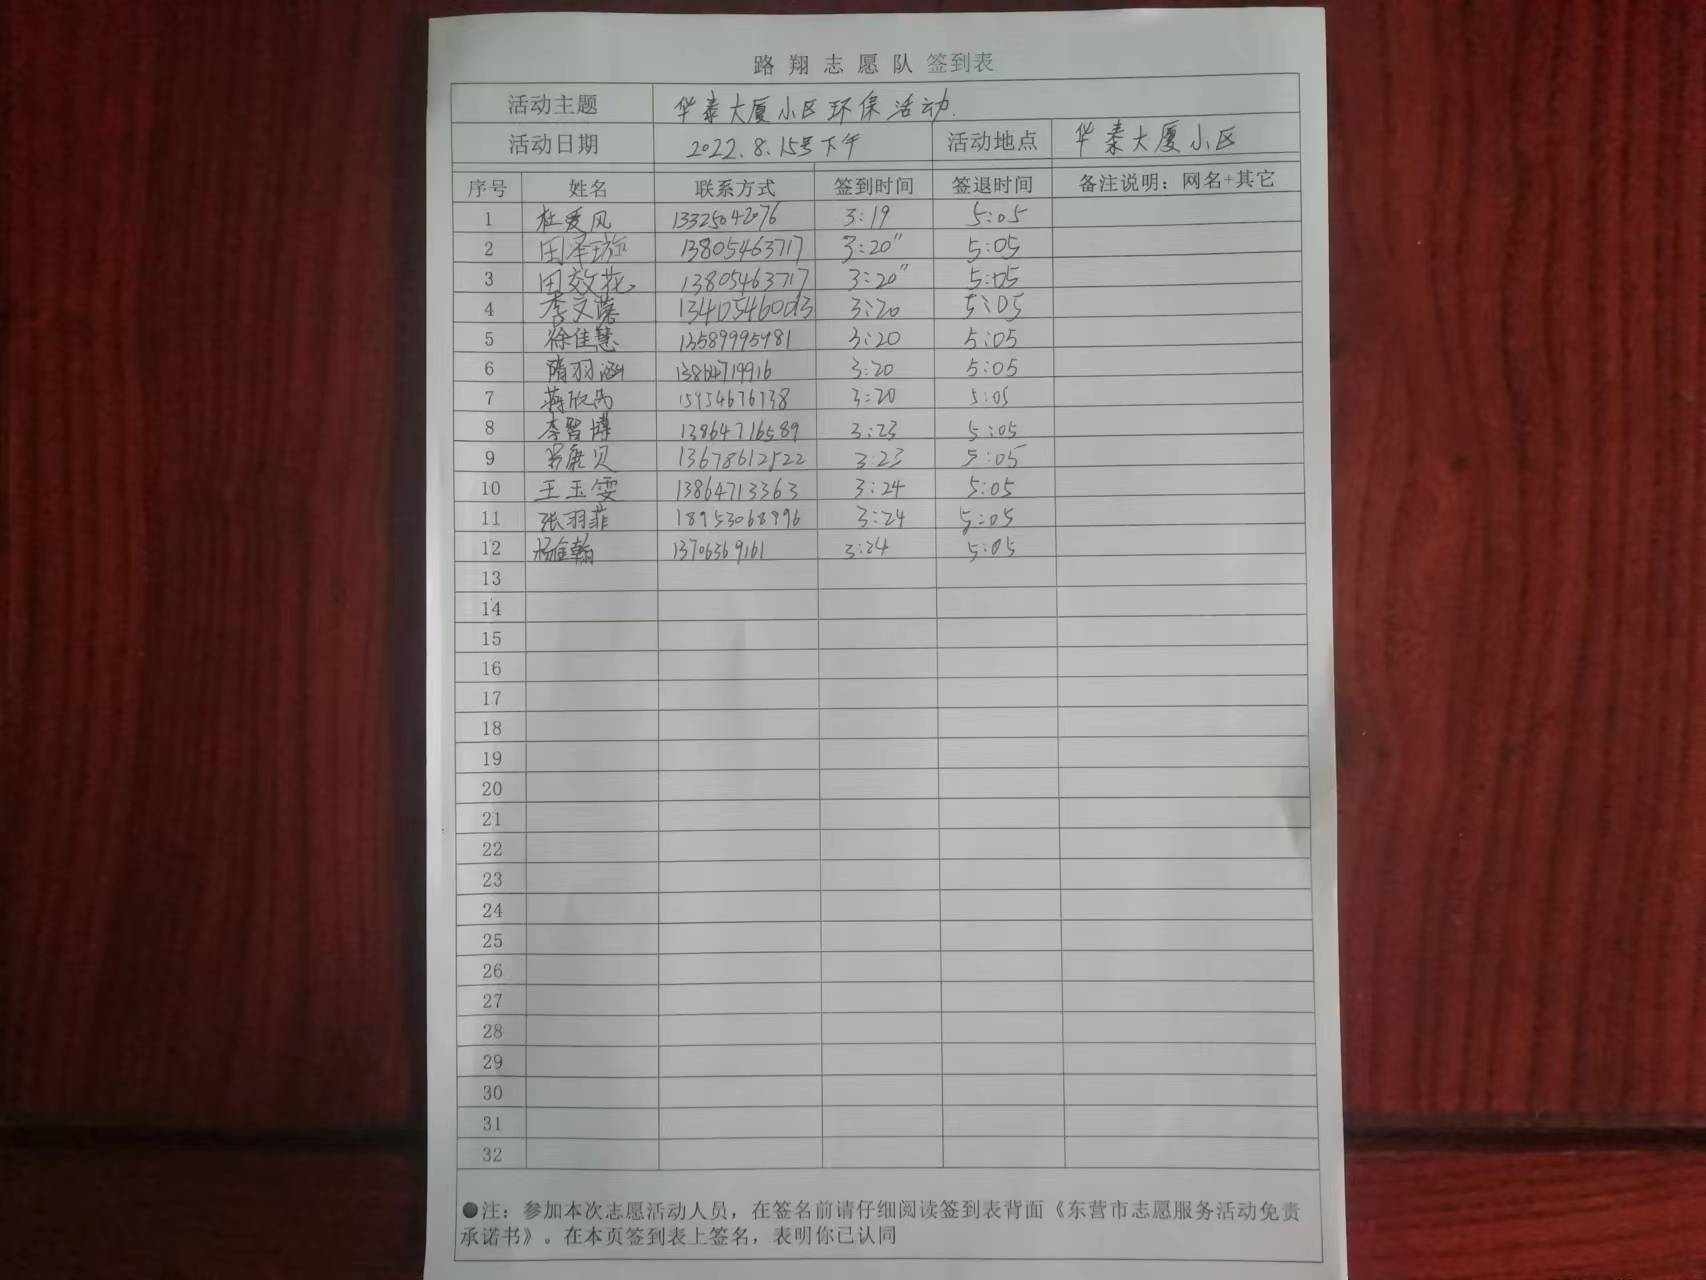 路翔志愿队 签到表
活动主题 华泰大厦小区环保活动.
活动日期 2022.8.15号下午 活动地点 华泰大厦小区
序号 姓名 联系方式 签到时间 签退时间 备注说明：网名+其它
1 杜爱风 13325042076 3:19 5:05
2 田泽 13805463717 3:20" 5:05
3 田效花 13805463717 3:20" 5:05
4 李文 3:20 5:05
5 徐佳慧 13589995981 3:20 5:05
6 隋羽涵 13864719916 3:20 5:05
7 蒋欣 15954676738 3:20 5:05
8 李智博 13864716589 3:23 5:05
9 康贝 13678612522 3:23 5:05
10 王玉雯 13864713363 3:24 5:05
11 张羽菲 18953068996 3:24 5:05
12 杨佳翰 13706369161 3:24 5:05
13
14
15
16
17
18
19
20
21
22
23
24
25
26
27
28
29
30
31
32
●注：参加本次志愿活动人员，在签名前请仔细阅读签到表背面《东营市志愿服务活动免责
承诺书》。在本页签到表上签名，表明你已认同